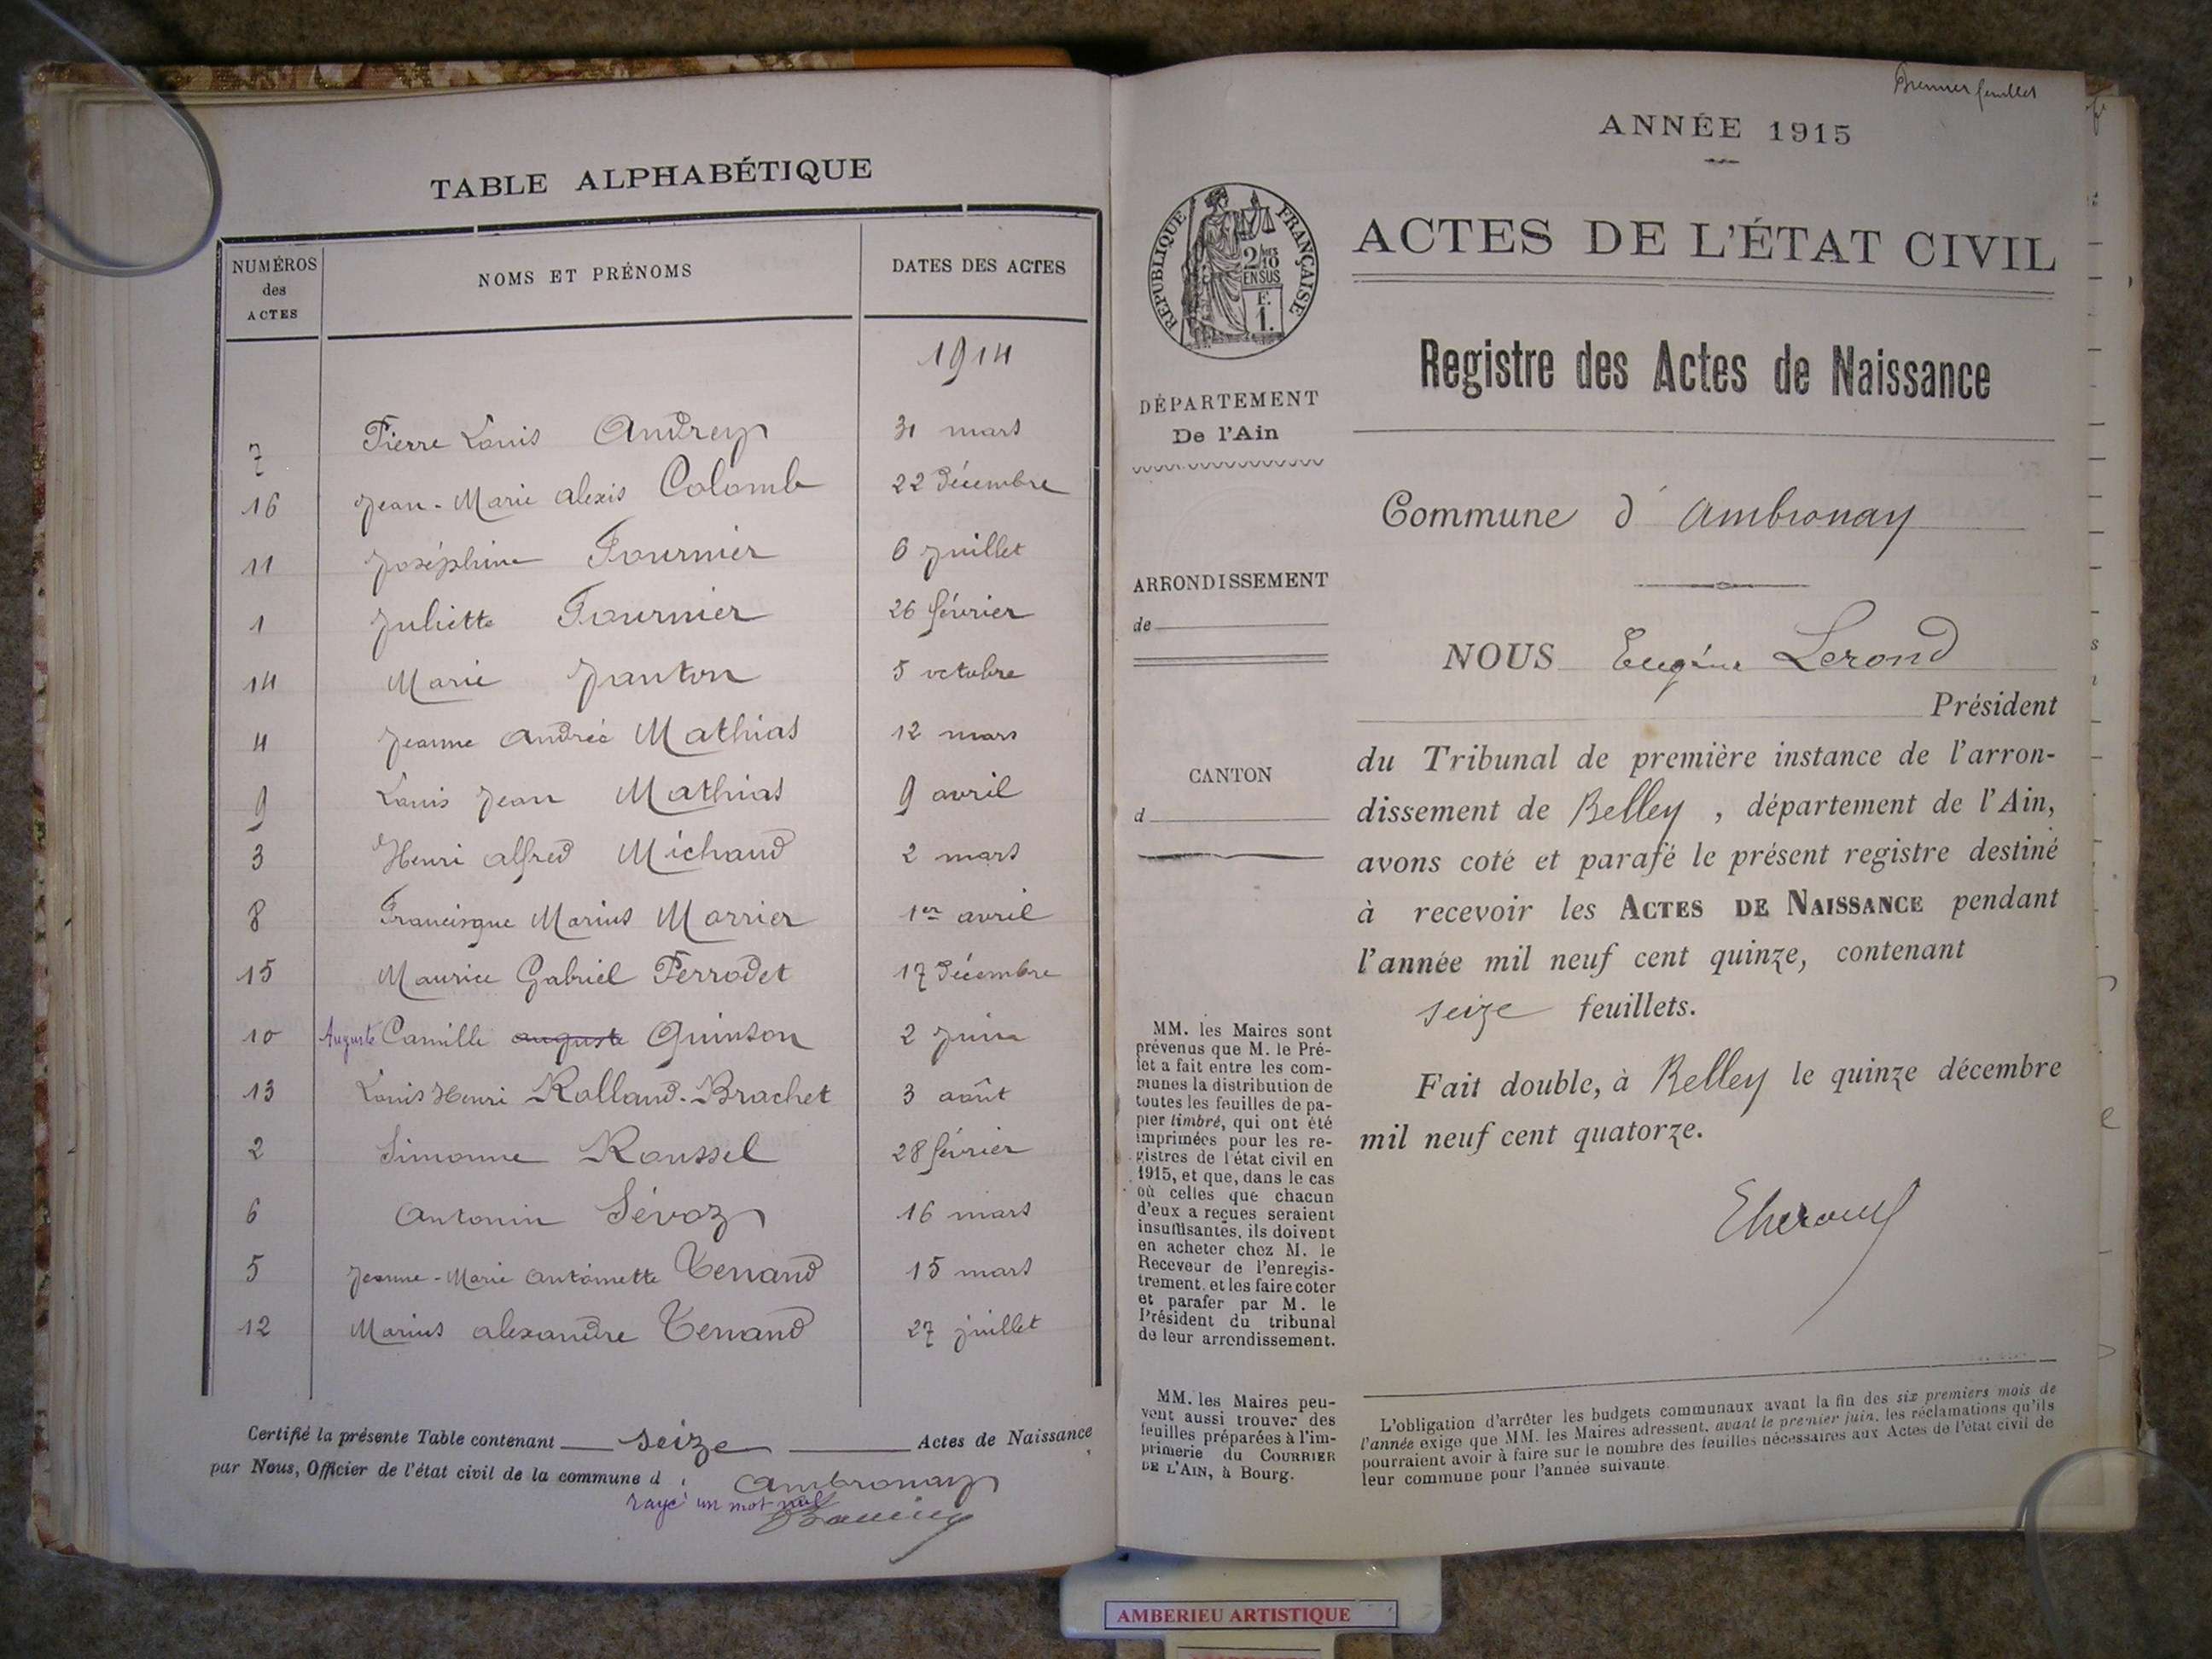 TABLE ALPHABÉTIQUE
NUMÉROS des ACTES
NOMS ET PRÉNOMS
DATES DES ACTES
1914
7 Pierre Louis Andrey 31 mars
16 Jean-Marie Alexis Colomb 22 Décembre
11 Joséphine Fournier 6 Juillet
1 Juliette Fournier 26 février
14 Marie Janton 5 octobre
4 Jeanne Andrée Mathias 12 mars
9 Louis Jean Mathias 9 avril
3 Henri Alfred Michaud 2 mars
8 Francisque Marius Morrier 1er avril
15 Maurice Gabriel Perrodet 17 Décembre
10 Auguste Camille auguste Quinson 2 Juin
13 Louis Henri Rolland-Brachet 3 août
2 Simonne Roussel 28 février
6 Antonin Sévoz 16 mars
5 Jeanne-Marie Antoinette Tenand 15 mars
12 Marius Alexandre Tenand 27 juillet
Certifié la présente Table contenant seize Actes de Naissance
par Nous, Officier de l'état civil de la commune d'Ambronay
rayé un mot nul
Premier feuillet
ANNÉE 1915
RÉPUBLIQUE FRANÇAISE
2/10
EN SUS
F.
1.
ACTES DE L'ÉTAT CIVIL
Registre des Actes de Naissance
DÉPARTEMENT
De l'Ain
ARRONDISSEMENT
de
CANTON
d
MM. les Maires sont
prévenus que M. le Pré-
fet a fait entre les com-
munes la distribution de
toutes les feuilles de pa-
pier timbré, qui ont été
imprimées pour les re-
gistres de l'état civil en
1915, et que, dans le cas
où celles que chacun
d'eux a reçues seraient
insuffisantes, ils doivent
en acheter chez M. le
Receveur de l'enregis-
trement, et les faire coter
et parafer par M. le
Président du tribunal
de leur arrondissement.
MM. les Maires peu-
vent aussi trouver des
feuilles préparées à l'im-
primerie du COURRIER
DE L'AIN, à Bourg.
Commune d'Ambronay
NOUS Eugène Lerond
Président
du Tribunal de première instance de l'arron-
dissement de Belley, département de l'Ain,
avons coté et parafé le présent registre destiné
à recevoir les ACTES DE NAISSANCE pendant
l'année mil neuf cent quinze, contenant
seize feuillets.
Fait double, à Belley le quinze décembre
mil neuf cent quatorze.
L'obligation d'arrêter les budgets communaux avant la fin des six premiers mois de
l'année exige que MM. les Maires adressent, avant le premier juin, les réclamations qu'ils
pourraient avoir à faire sur le nombre des feuilles nécessaires aux Actes de l'état civil de
leur commune pour l'année suivante.
AMBERIEU ARTISTIQUE